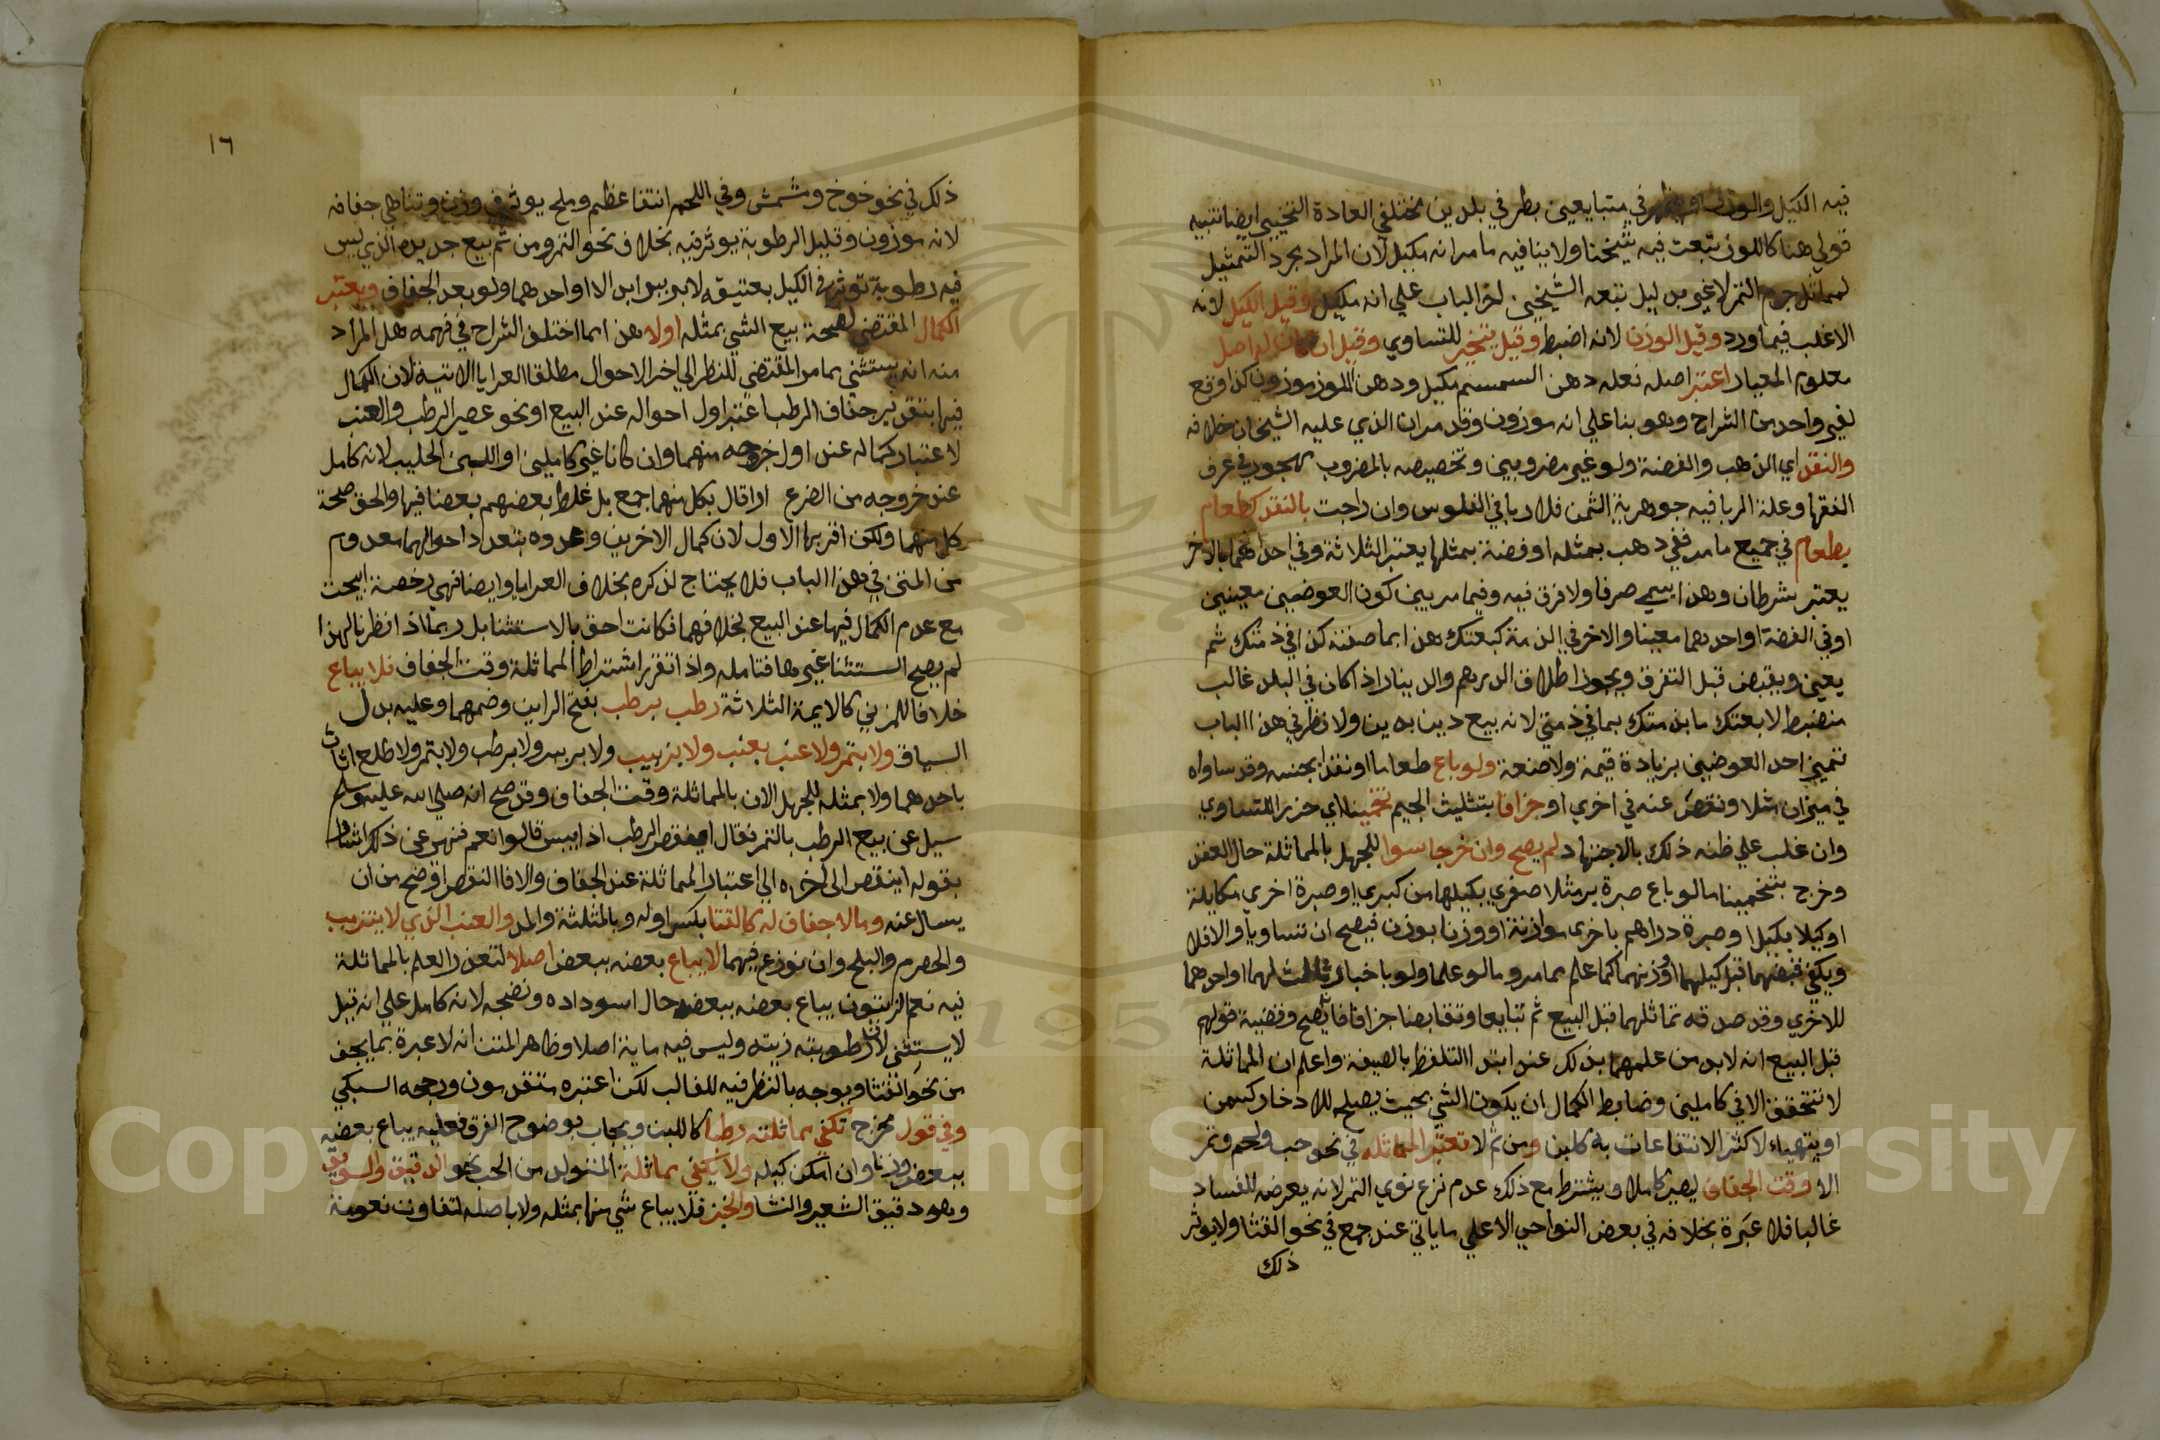 فيه الكيل والوزن ويظهر في متبايعين بطرفي بلدين مختلفي العادة التخيير ايضا تنبيه
قولي هنا كاللوز تبعت فيه شيخنا ولا ينافيه ما مر انه مكيل لان المراد مجرد التمثيل
لمماثل جرم التمر لا غير بدليل تبعه الشيخين اخر الباب علي انه مكيل وقيل الكيل لانه
الاغلب فيما ورد وقيل الوزن لانه اضبط وقيل يتخير للتساوي وقيل ان كان له اصل
معلوم المعيار اعتبر اصله فعله دهن السمسم مكيل ودهن اللوز موزون كذا وقع
لغير واحد من الشراح وهو بنا علي انه موزون وقد مر ان الذي عليه الشيخان خلافه
والنقد اي الذهب والفضة ولو غير مضروبين وتخصيصه بالمضروب مهجور في عرف
الفقها وعلة الربا فيه جوهرية الثمن فلا ربا في الفلوس وان راجت بالنقد كطعام
بطعام في جميع ما مر ففي ذهب بمثله او فضة بمثلها يعتبر الثلاثة وفي احدهما بالاخر
يعتبر شرطان وهذا يسمي صرفا ولا فرق فيه وفيما مر بين كون العوضين معينين
او في الذمة او احدهما معينا والاخر في الذمة كبعتك هذا بما صفته كذا في ذمتك ثم
يعين ويقبض قبل التفرق ويجوز اطلاق الدرهم والدينار اذا كان في البلد غالب
منضبط لا بعتك ما بذمتك بما في ذمتي لانه بيع دين بدين ولا نظر في هذا الباب
لتميز احد العوضين بزيادة قيمة ولا صنعة ولو باع طعاما او نقدا بجنسه وقد ساواه
في ميزان مثلا ونقص عنه في اخري او جزافا بتثليث الجيم تخمينا اي حزرا للتساوي
وان غلب علي ظنه ذلك بالاجتهاد لم يصح وان خرجا سوا للجهل بالمماثلة حال العقد
وخرج بتخمينا ما لو باع صبرة بر مثلا صغري بكيلها من كبري او صبرة اخري مكايلة
او كيلا بكيل او صبرة دراهم باخرى موازنة او وزنا بوزن فيصح ان تساويا والا فلا
ويكفي قبضهما قبل كيلهما او وزنهما كما علم مما مر وما لو علما ولو باخبار ثالث لهما او احدهما
للاخري وقد صدقه تماثلهما قبل البيع ثم تبايعا وتقابضا جزافا فانه يصح وقضية قولهم
قبل البيع انه لا بد من علمهما بذلك عند ابتدا التلفظ بالصيغة واعلم ان المماثلة
لا تتحقق الا في كاملين وضابط الكمال ان يكون الشي بحيث يصلح للادخار كسمن
او يتهياء لاكثر الانتفاعات به كلبن ومن ثم لا تعتبر المماثله في نحو حب ولحم وتمر
الا وقت الجفاف ليصير كاملا ويشترط مع ذلك عدم نزع نوي التمر لانه يعرضه للفساد
غالبا فلا عبرة بخلافه في بعض النواحي الا علي ما ياتي عند جمع في نحو القثا ولا يوثر
ذلك
١٦
ذلك في نحو خوخ ومشمش وفي اللحم انتفا عظم وملح يوثر في وزن وتناهي جفافه
لانه موزون وقليل الرطوبة يوثر فيه بخلاف نحو التمر ومن ثم بيع جديده الذي ليس
فيه رطوبة توثر في الكيل بعتيقه لا بر ببر ابتلا او احدهما ولو بعد الجفاف ويعتبر
الكمال المقتضي لصحة بيع الشي بمثله اولا هذا مما اختلف الشراح في فهمه هل المراد
منه انه يستثني مما مر المقتضي للنظر الي اخر الاحوال مطلقا العرايا الاتية لان الكمال
فيها بتقدير جفاف الرطب اعتبر اول احواله عند البيع او نحو عصير الرطب والعنب
لاعتبار كماله عند اول خروجه منهما وان كانا غير كاملين او اللبن الحليب لانه كامل
عند خروجه من الضرع اراقال بكل منهما جمع بل غلط بعضهم بعضا فيها والحق صحة
كل منهما ولكن اقربها الاول لان كمال الاخرين وعدوه بتعداد احوالهما معلوم
من المتن في هذا الباب فلا يحتاج لذكره بخلاف العرايا وايضا فهي رخصة ابيحت
مع عدم الكمال فيها عند البيع بخلافهما فكانت احق بالاستثنا بل ربما اذا نظرنا لهذا
لم يصح استثنا غيرها فتامله واذا تقرر اشتراط المماثلة وقت الجفاف فلا يباع
خلافا للمزني كالايمة الثلاثة رطب برطب بفتح الراين وضمهما وعليه يدل
السياق ولا بتمر ولا عنب بعنب ولا بزبيب ولا بر ببر ولا برطب ولا بتمر ولا طلع اناث
باحدهما ولا بمثله للجهل الان بالمماثلة وقت الجفاف وقد صح انه صلي الله عليه وسلم
سيل عن بيع الرطب بالتمر فقال اينقص الرطب اذا يبس قالوا نعم فنهى عن ذلك اشار
بقوله اينقص الى اخره الي اعتبار المماثلة عند الجفاف والا فالنقص اوضح من ان
يسال عنه وما لا جفاف له كالقثا بكسر اوله وبالمثلثة والمد والعنب الذي لا يتزبب
والحصرم والبلح وان نوزع فيهما لا يباع بعضه ببعض اصلا لتعذر العلم بالمماثلة
فيه نعم الزيتون يباع بعضه ببعض حال اسوداده ونضجه لانه كامل علي انه قيل
لا يستثنى لان رطوبته زيته وليس فيه ماية اصلا وظاهر المتن انه لا عبرة بما يجف
من نحو القثا ويوجه بالنظر فيه للغالب لكن اعتبره متقدمون ورجحه السبكي
وفي قول مخرج تكفي مماثلته رطبا كاللبن ويجاب بوضوح الفرق فعليه يباع بعضه
ببعض وزنا وان امكن كيله ولا يكفي مماثلة المتولد من الحب نحو الدقيق والسويق
وهو دقيق الشعير والنشا والخبز فلا يباع شي منها بمثله ولا باصله لتفاوت نعومة